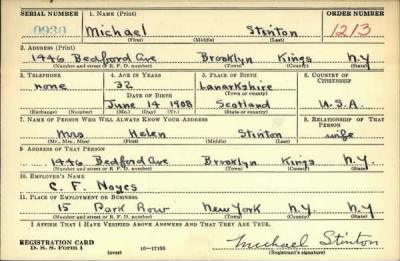 SERIAL NUMBER 1. NAME (Print) ORDER NUMBER
0930 Michael Stinton 1213
(First) (Middle) (Last)
2. ADDRESS (Print)
1446 Bedford Ave Brooklyn Kings N.Y
(Number and street or R. F. D. number) (Town) (County) (State)
3. TELEPHONE 4. AGE IN YEARS 5. PLACE OF BIRTH 6. COUNTRY OF CITIZENSHIP
none 32 Lanarkshire
DATE OF BIRTH (Town or county)
June 14 1908 Scotland U.S.A.
(Exchange) (Number) (Mo.) (Day) (Yr.) (State or country)
7. NAME OF PERSON WHO WILL ALWAYS KNOW YOUR ADDRESS 8. RELATIONSHIP OF THAT PERSON
Mrs Helen Stinton wife
(Mr., Mrs., Miss) (First) (Middle) (Last)
9. ADDRESS OF THAT PERSON
1446 Bedford Ave Brooklyn Kings N.Y.
(Number and street or R. F. D. number) (Town) (County) (State)
10. EMPLOYER'S NAME
C. F. Noyes
11. PLACE OF EMPLOYMENT OR BUSINESS
15 Park Row New York N.Y.
(Number and street or R. F. D. number) (Town) (County) (State)
I AFFIRM THAT I HAVE VERIFIED ABOVE ANSWERS AND THAT THEY ARE TRUE.
REGISTRATION CARD
D. S. S. Form 1 (over) 16—17105 Michael Stinton
(Registrant's signature)